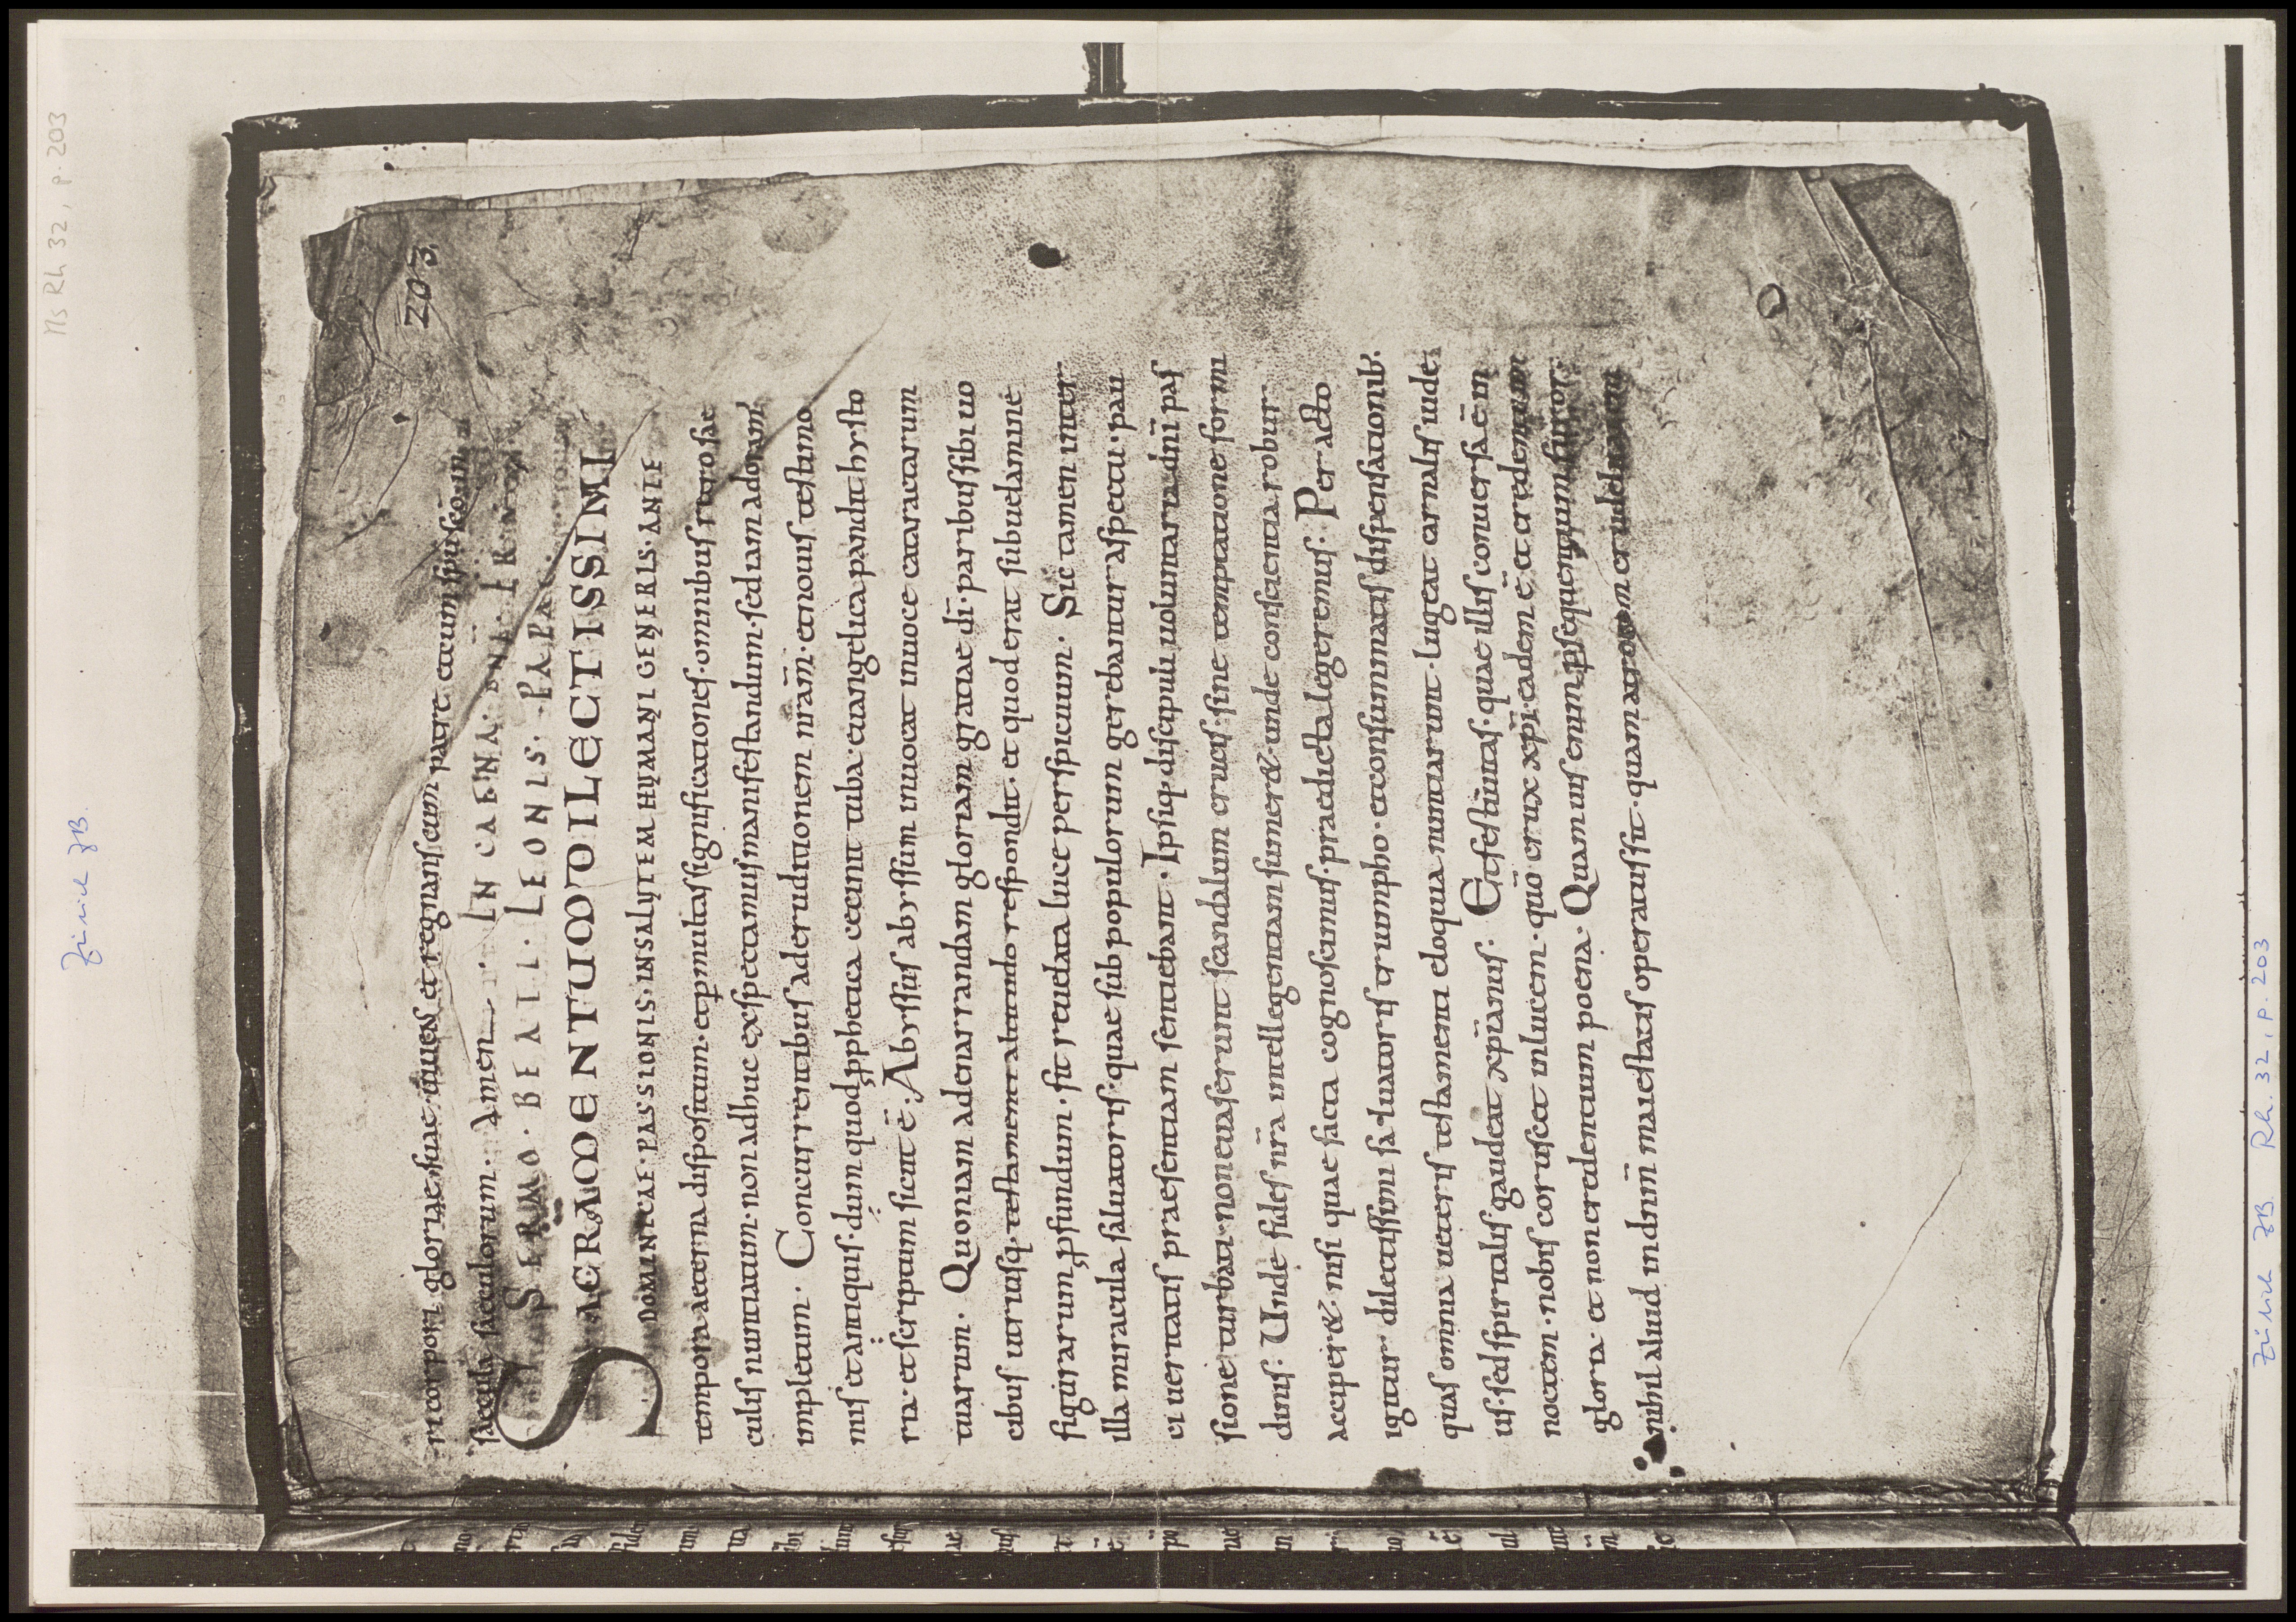 Ms Rh 32, p. 203
Zürich ZB.
203
ri corpori gloriae suae· uiuens et regnans cum patre et cum spu sco in
saecula saeculorum· Amen IN CAENA· DNI·
SERMO· BEATI· LEONIS· PAPAE·
SACRAMENTUM DILECTISSIMI
DOMINICAE· PASSIONIS· IN SALUTEM HUMANI GENERIS· ANTE
tempora aeterna dispositum· et p multas significationes· omnibus retro sae
culis nuntiatum· non adhuc exspectamus manifestandum· sed iam adoram
impletum· Concurrentibus ad eruditionem nram̄· et nouis testimo
niis et antiquis· dum quod pphetica cecinit tuba· euangelica pandit hysto
ria· et scriptum sicut ē· Abyssus abyssum inuocat in uoce cataractarum
tuarum· Quoniam ad enarrandam gloriam gratiae dī· paribus sibi uo
cibus utriusq· testamenti altitudo respondit· et quod erat sub uelamine
figurarum pfundum· fit reuelata luce perspicuum· Sic tamen inter
illa miracula saluatoris· quae sub populorum gerebantur aspectu· pau
ci ueritatis praesentiam sentiebant· Ipsiq· discipuli uoluntaria dnī pas
sione turbati· non euaserunt scandalum crucis· sine temptatione formi
dinis· Unde fides nr̄a intellegentiam sumer& unde conscientia robur
acciper& nisi quae facta cognoscimus· praedicta legeremus· Peracto
igitur dilectissimi saluatoris triumpho· et consummatis dispensationib·
quas omnia ueteris testamenti eloquia nuntiarunt· lugeat carnalis iude
us· sed spiritalis gaudeat xpīanus· Et festiuitas· quae illis conuersa ē in
noctem· nobis coruscet in lucem· quō crux xpī eadem ē et credentium
gloria· et non credentium poena· Quamuis enim psequentium furor·
nihil aliud in dnm̄ maiestatis operatus sit· quam atrocem crudelitatem
Zürich ZB. Rh. 32, p. 203